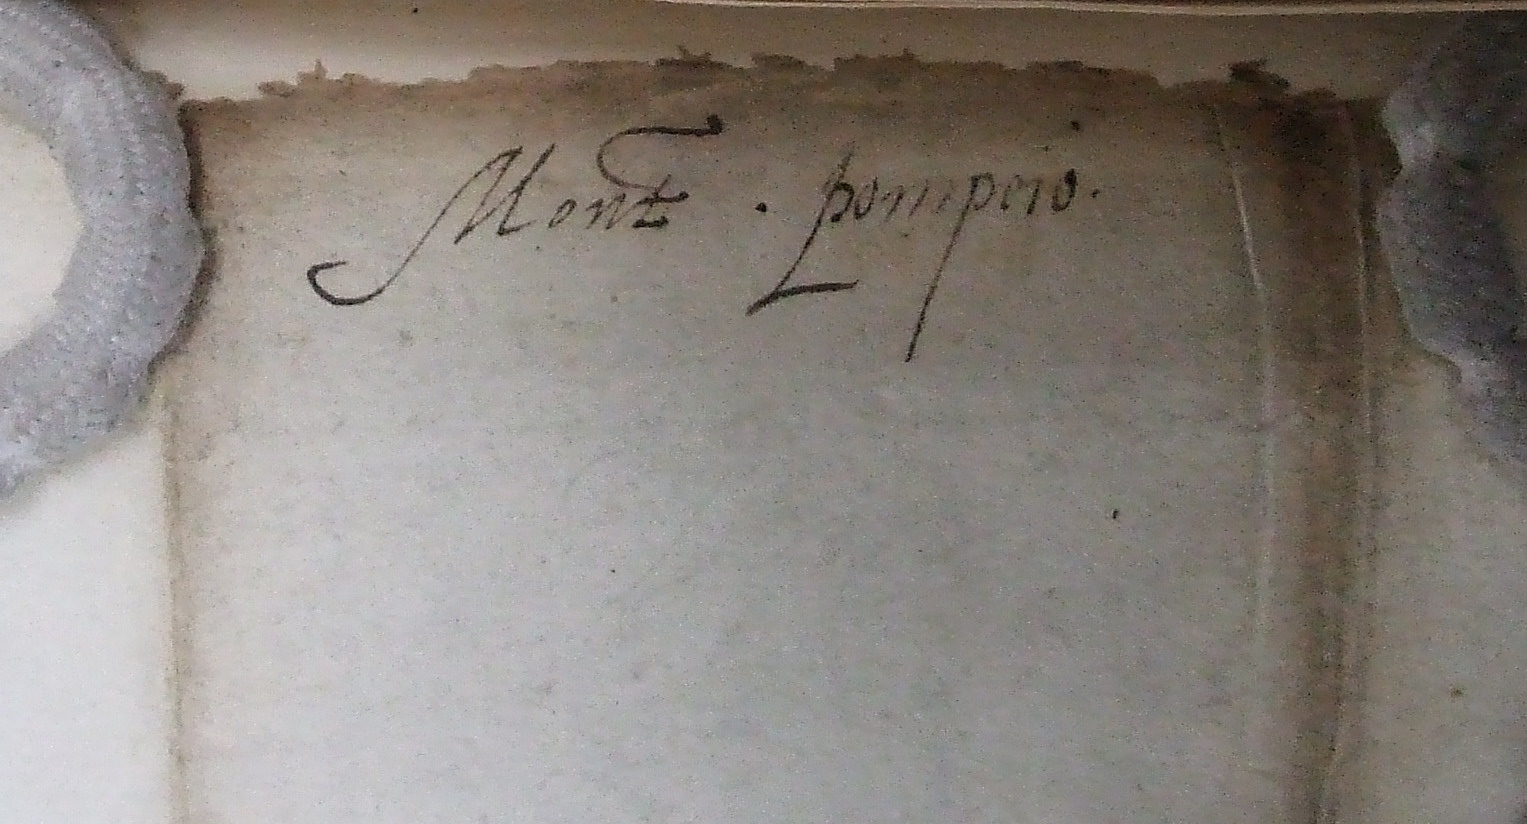 Mont . pompeio.